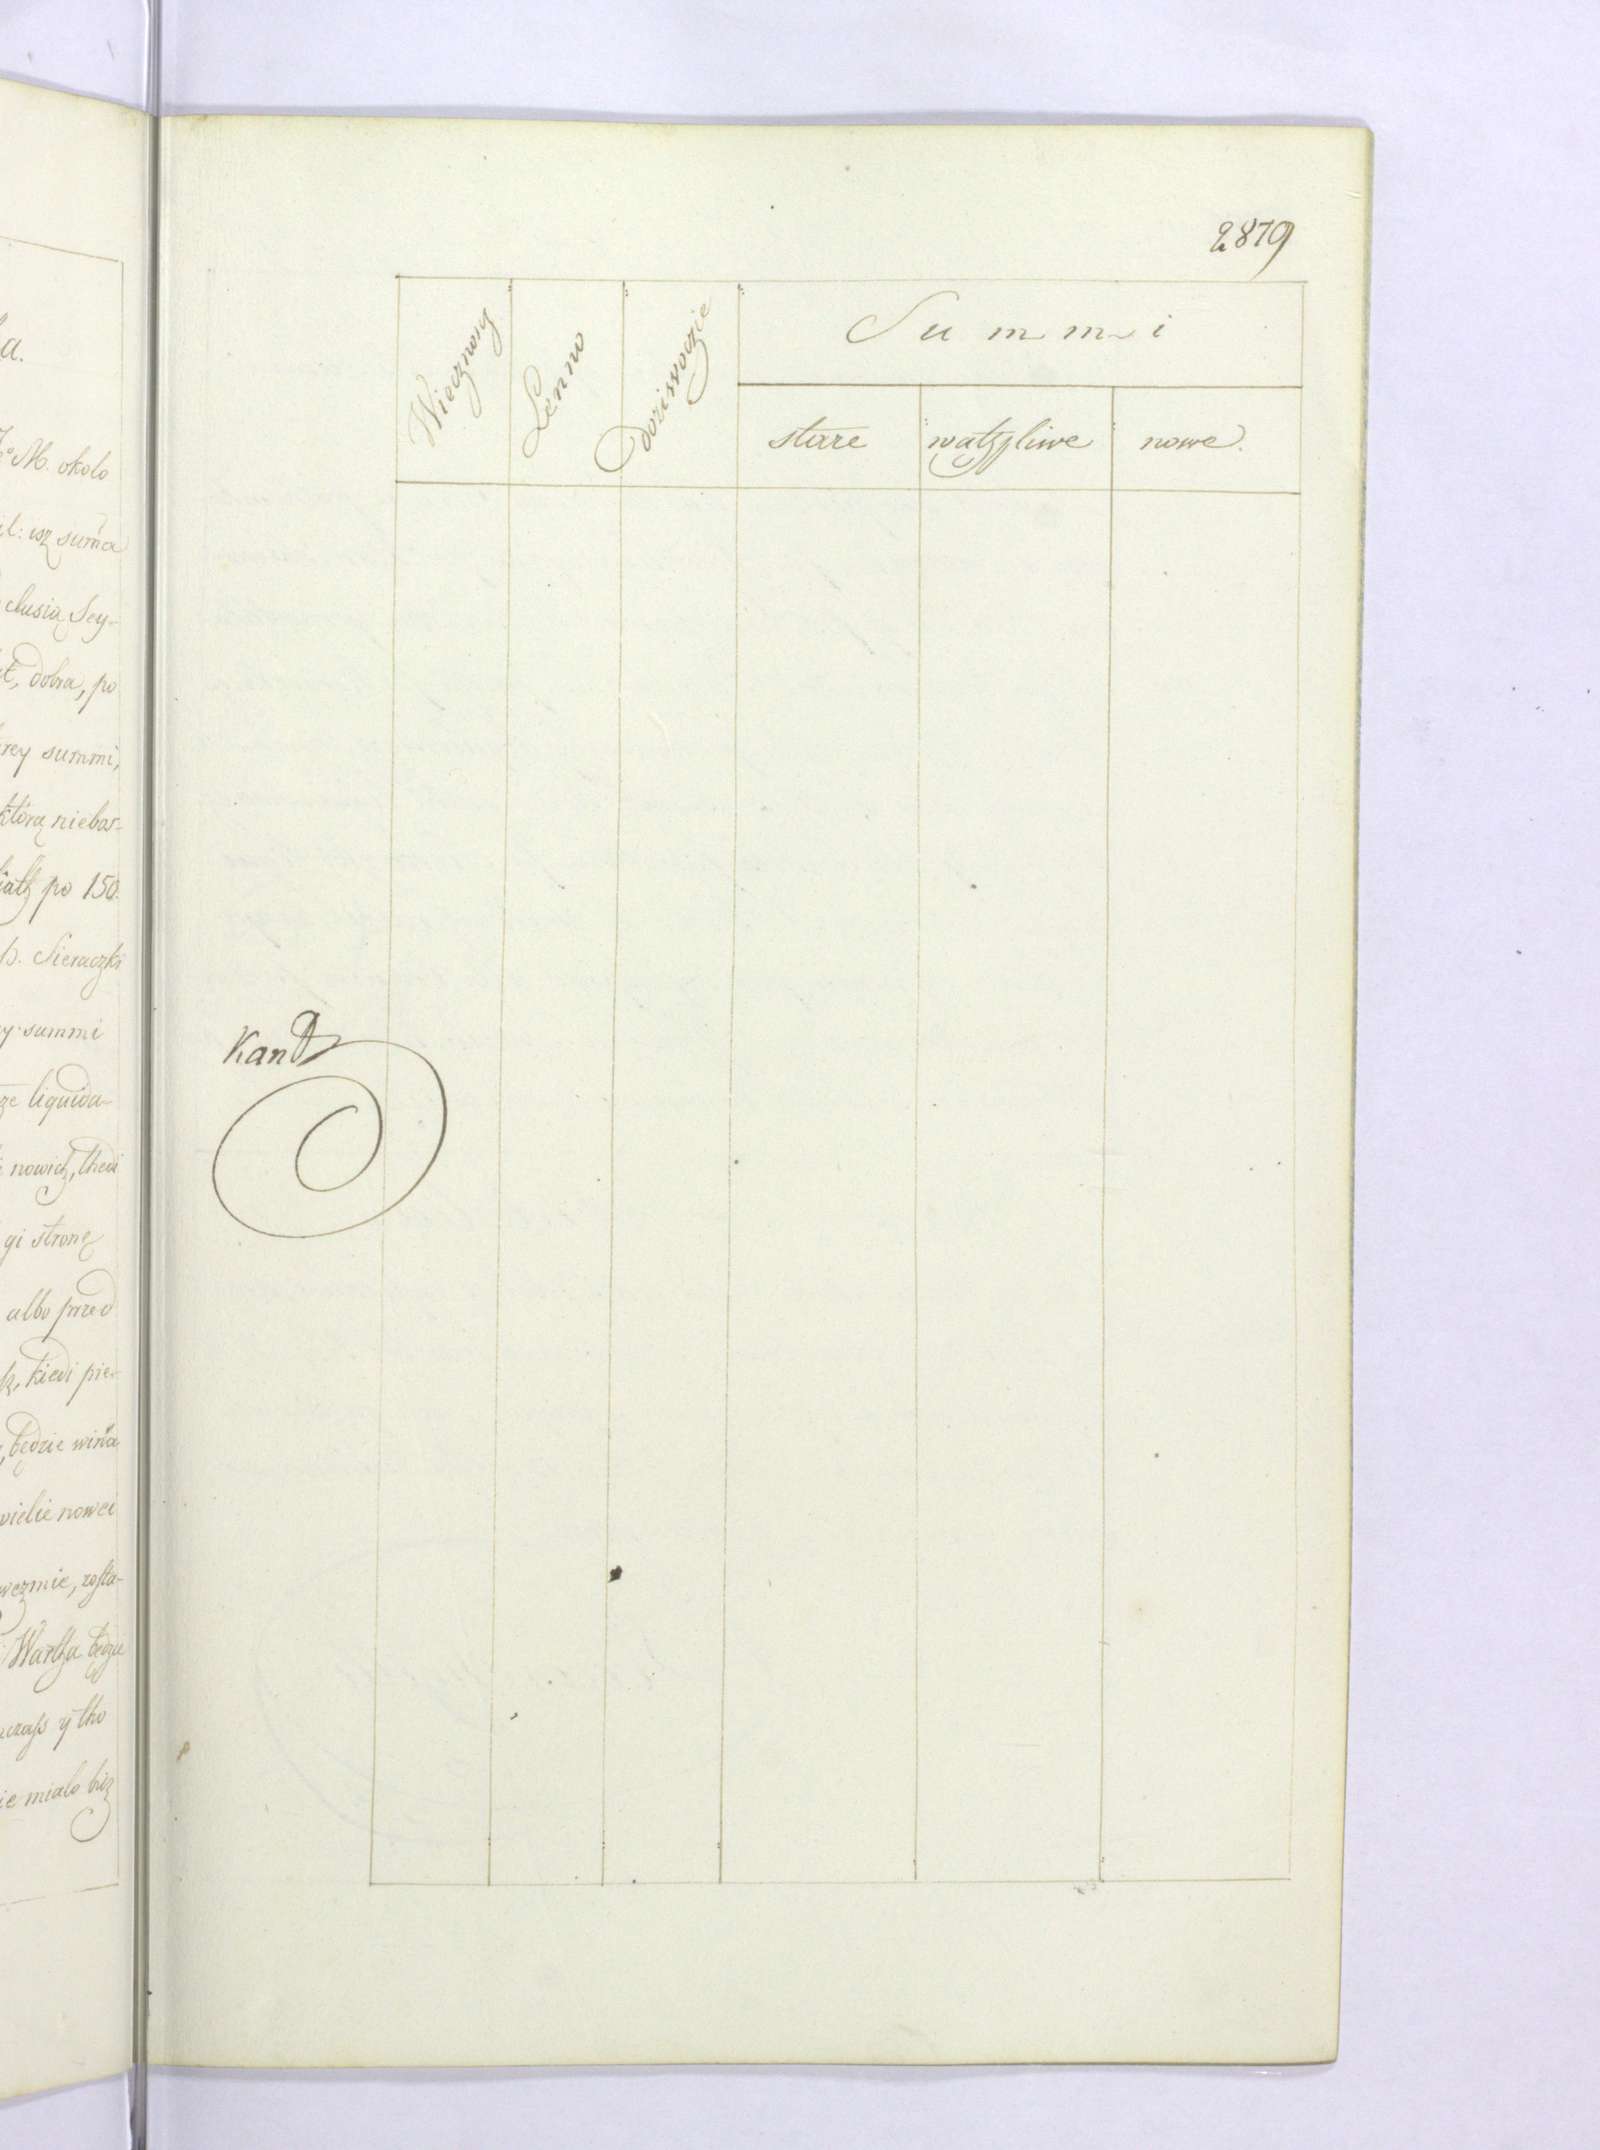 a.
M. okolo
il: isz suma
clusią Sey-
t, dobra, po
rey summi,
którą niebar-
po 150.
p. Sieraczki
y summi
ze liquida-
nowich, thedi
gi stronę
albo przed
kiedi pie-
będzie wina
wielie nowei
wezmie, zosta-
Wartha będzie
czass ÿ tho
ie mialo bicz
2879
Wiecznosz
Lenno
Doziwoczie
Summi
stare
wątpliwe
nowe.
Kand